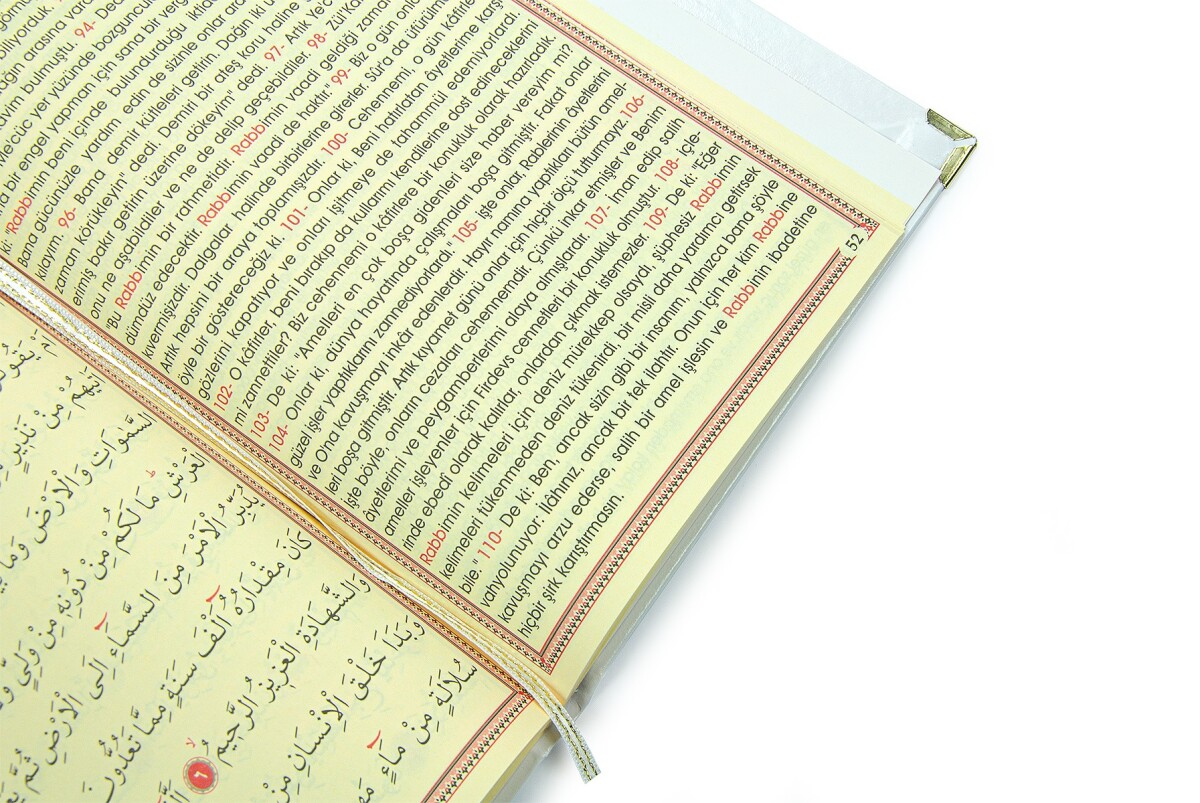 biliyorduk.
kavim bulmuştu. 94- Dedi
Me'cüc yer yüzünde bozguncul
da bir engel yapman için sana bir verg
ki: "Rabbimin beni içinde bulundurduğu iktidar
Bana gücünüzle yardım edin de sizinle onlar ara
klayım. 96- Bana demir kütleleri getirin. Dağın iki u
zaman "körükleyin" dedi. Demiri bir ateş koru haline
erimiş bakır getirin üzerine dökeyim" dedi. 97- Artık Ye'c
onu ne aşabildiler ve ne de delip geçebildiler. 98- Zül'Ka
Bu Rabbimin bir rahmetidir. Rabbimin vaadi geldiği zaman
dümdüz edecektir. Rabbimin vaadi de haktır." 99- Biz o gün onla
kıvermişizdir. Dalgalar halinde birbirlerine girerler. Sûr'a da üfürülm
Artık hepsini bir araya toplamışızdır. 100- Cehennemi, o gün kâfirle
öyle bir göstereceğiz ki. 101- Onlar ki, Beni hatırlatan âyetlerime karşı
gözlerini kapatıyor ve onları işitmeye de tahammül edemiyorlardı.
102- O kâfirler, beni bırakıp da kullarımı kendilerine dost edineceklerini
mi zannettiler? Biz cehennemi o kâfirlere bir konukluk olarak hazırladık.
103- De ki: "Amelleri en çok boşa gidenleri size haber vereyim mi?
104- Onlar ki, dünya hayatında çalışmaları boşa gitmiştir. Fakat onlar
güzel işler yaptıklarını zannediyorlardı." 105- İşte onlar, Rablerinin âyetlerini
ve O'na kavuşmayı inkâr edenlerdir. Hayır namına yaptıkları bütün amel-
leri boşa gitmiştir. Artık kıyamet günü onlar için hiçbir ölçü tutturmayız. 106-
İşte böyle, onların cezaları cehennemdir. Çünkü inkar etmişler ve Benim
âyetlerimi ve peygamberlerimi alaya almışlardır. 107- İman edip salih
ameller işleyenler için Firdevs cennetleri bir konukluk olmuştur. 108- İçle-
rinde ebedî olarak kalırlar, onlardan çıkmak istemezler. 109- De ki: "Eğer
Rabbimin kelimeleri için deniz mürekkep olsaydı, şüphesiz Rabbimin
kelimeleri tükenmeden deniz tükenirdi, bir misli daha yardımcı getirsek
bile." 110- De ki: Ben, ancak sizin gibi bir insanım, yalnızca bana şöyle
vahyolunuyor: İlâhınız, ancak bir tek ilahtır. Onun için her kim Rabbine
kavuşmayı arzu ederse, salih bir amel işlesin ve Rabbinin ibadetine
hiçbir şirk karıştırmasın.
52
يَهُمْ مِنْ نَذِيرٍ
السَّمٰوَاتِ وَالْاَرْضَ وَمَا بَ
الْعَرْشِ مَا لَكُمْ مِنْ دُونِهِ مِنْ وَلِيٍّ وَ
يُدَبِّرُ الْاَمْرَ مِنَ السَّمَاءِ اِلَى الْاَرْضِ ثُمَّ يَعْ
كَانَ مِقْدَارُهُ اَلْفَ سَنَةٍ مِمَّا تَعُدُّونَ
وَالشَّهَادَةِ الْعَزِيزُ الرَّحِيمُ ٦ اَلَّ
وَبَدَاَ خَلْقَ الْاِنْسَانِ مِنْ
سُلَالَةٍ مِنْ مَاءٍ مَ